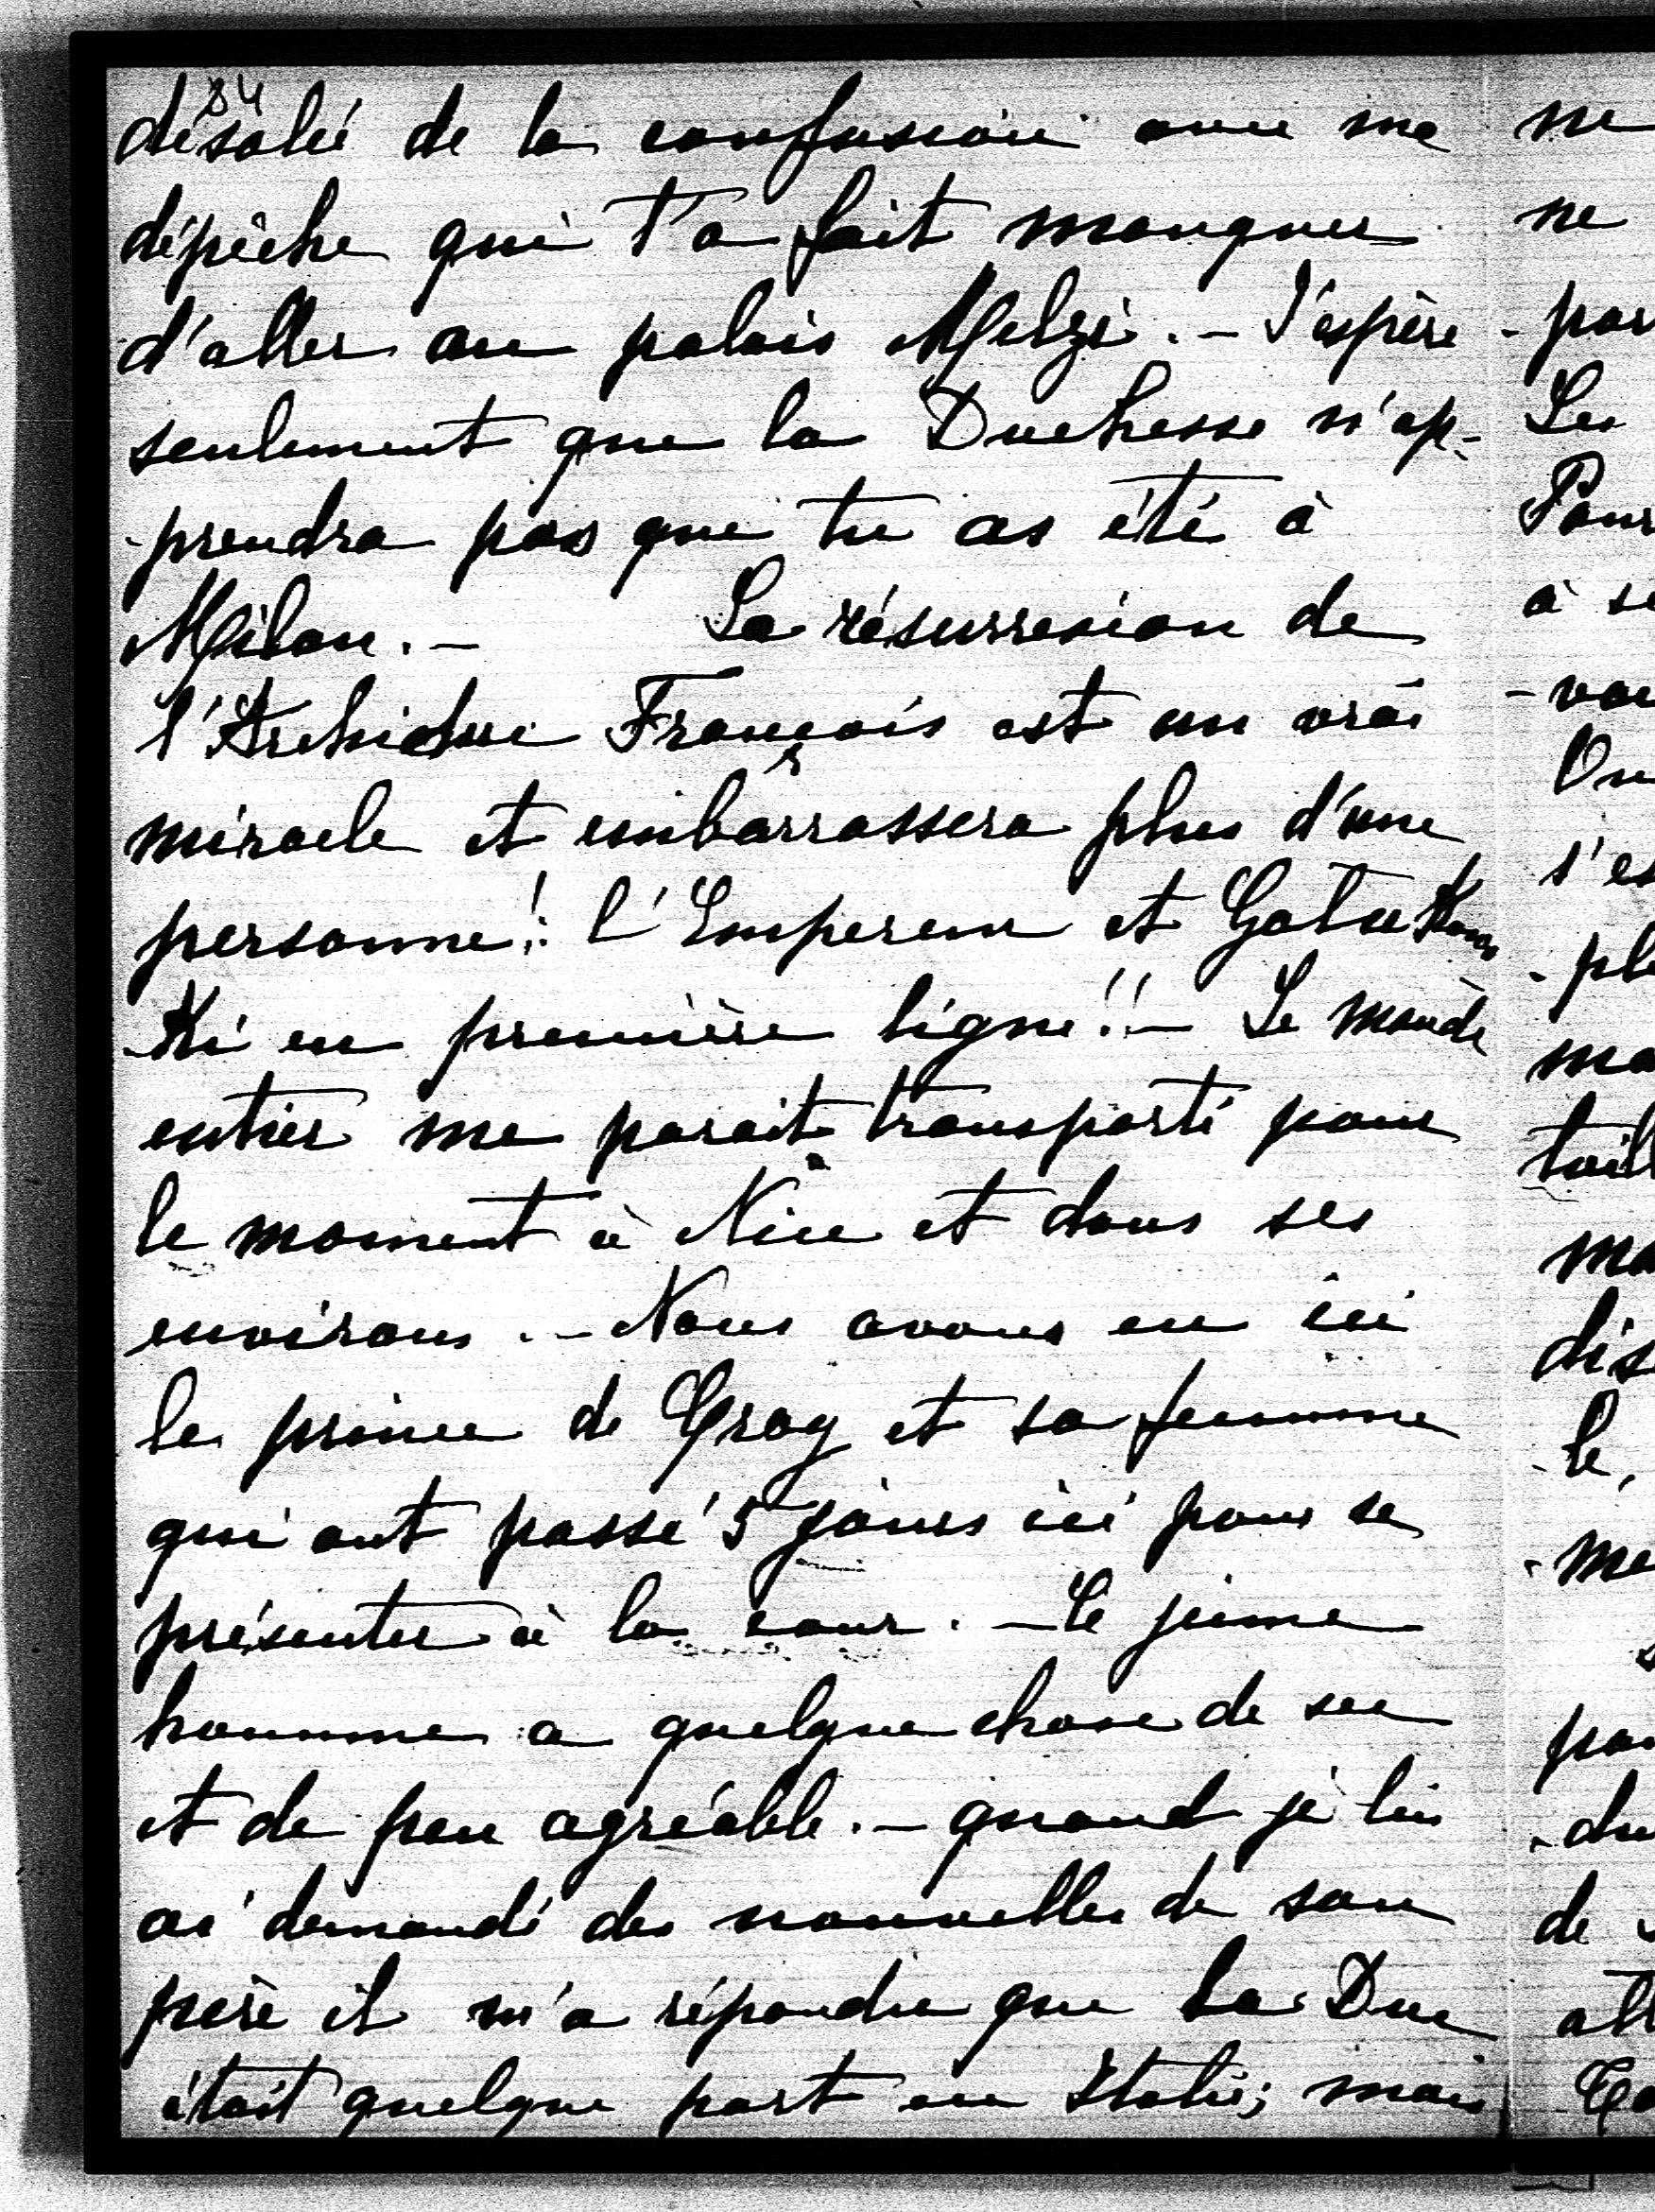 84
désolée de la confusion avec ma
dépêche qui t'a fait manquer
d'aller au palais Melzi. – J'espère
seulement que la Duchesse n'ap-
-prendra pas que tu as été à
Milan. – La résurrexion de
l'Archiduc François est un vrai
miracle et embarrassera plus d'une
personne! : l'Empereur et
-ki en première ligne!! – Le monde
entier me parait transporté pour
le moment à Nice et dans ses
environs. – Nous avons eu ici
le prince de Croy et sa femme
qui ont passé 5 jours ici pour se
présenter à la cour. – Le jeune
homme a quelque chose de sec
et de peu agréable. – quand je lui
ai demandé des nouvelles de son
père il m'a répondu que le Duc
était quelque part en Italie; mais
ne
ne
- par
Les
Pour
à se
- vou
On
s'es
- pl
ma
taill
ma
dis
- le,
- me
par
- du
de
all